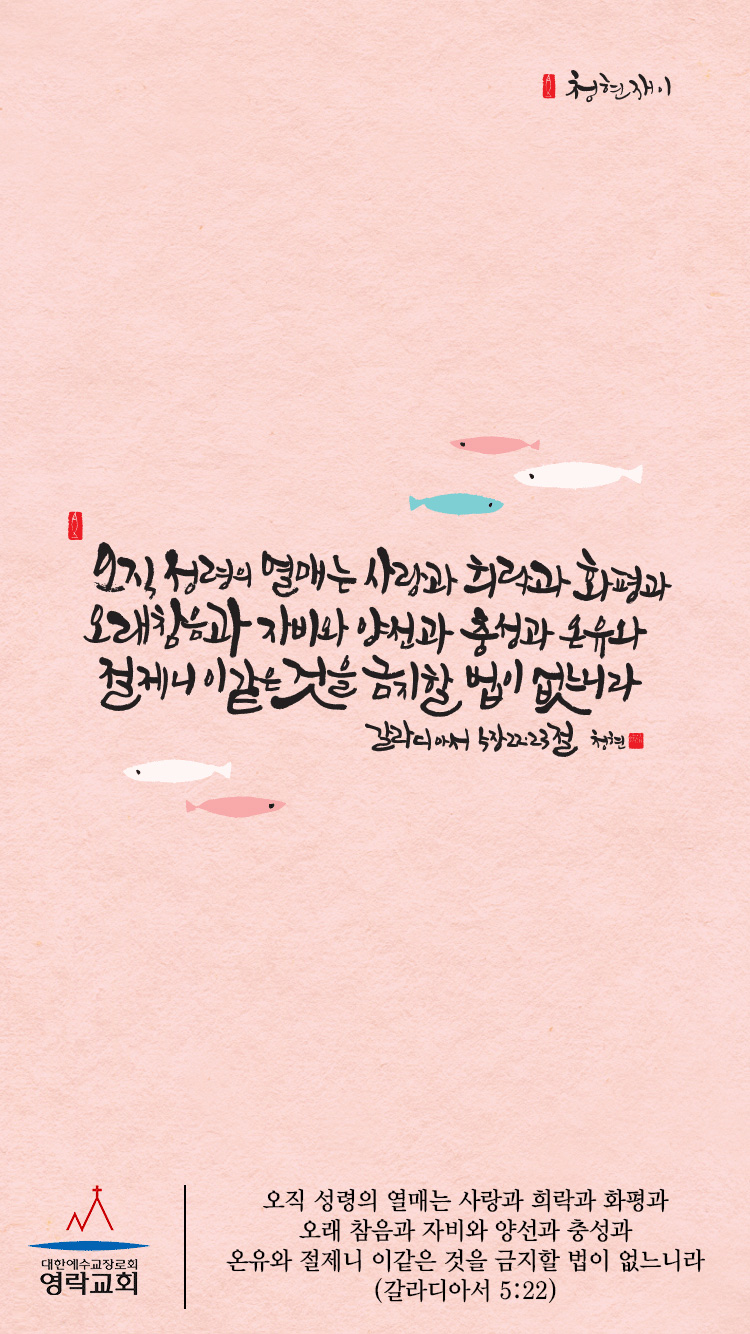 청현재이
오직 성령의 열매는 사랑과 희락과 화평과
오래참음과 자비와 양선과 충성과 온유와
절제니 이같은 것을 금지할 법이 없느니라
갈라디아서 5장22.23절 청현
대한예수교장로회
영락교회
오직 성령의 열매는 사랑과 희락과 화평과
오래 참음과 자비와 양선과 충성과
온유와 절제니 이같은 것을 금지할 법이 없느니라
(갈라디아서 5:22)